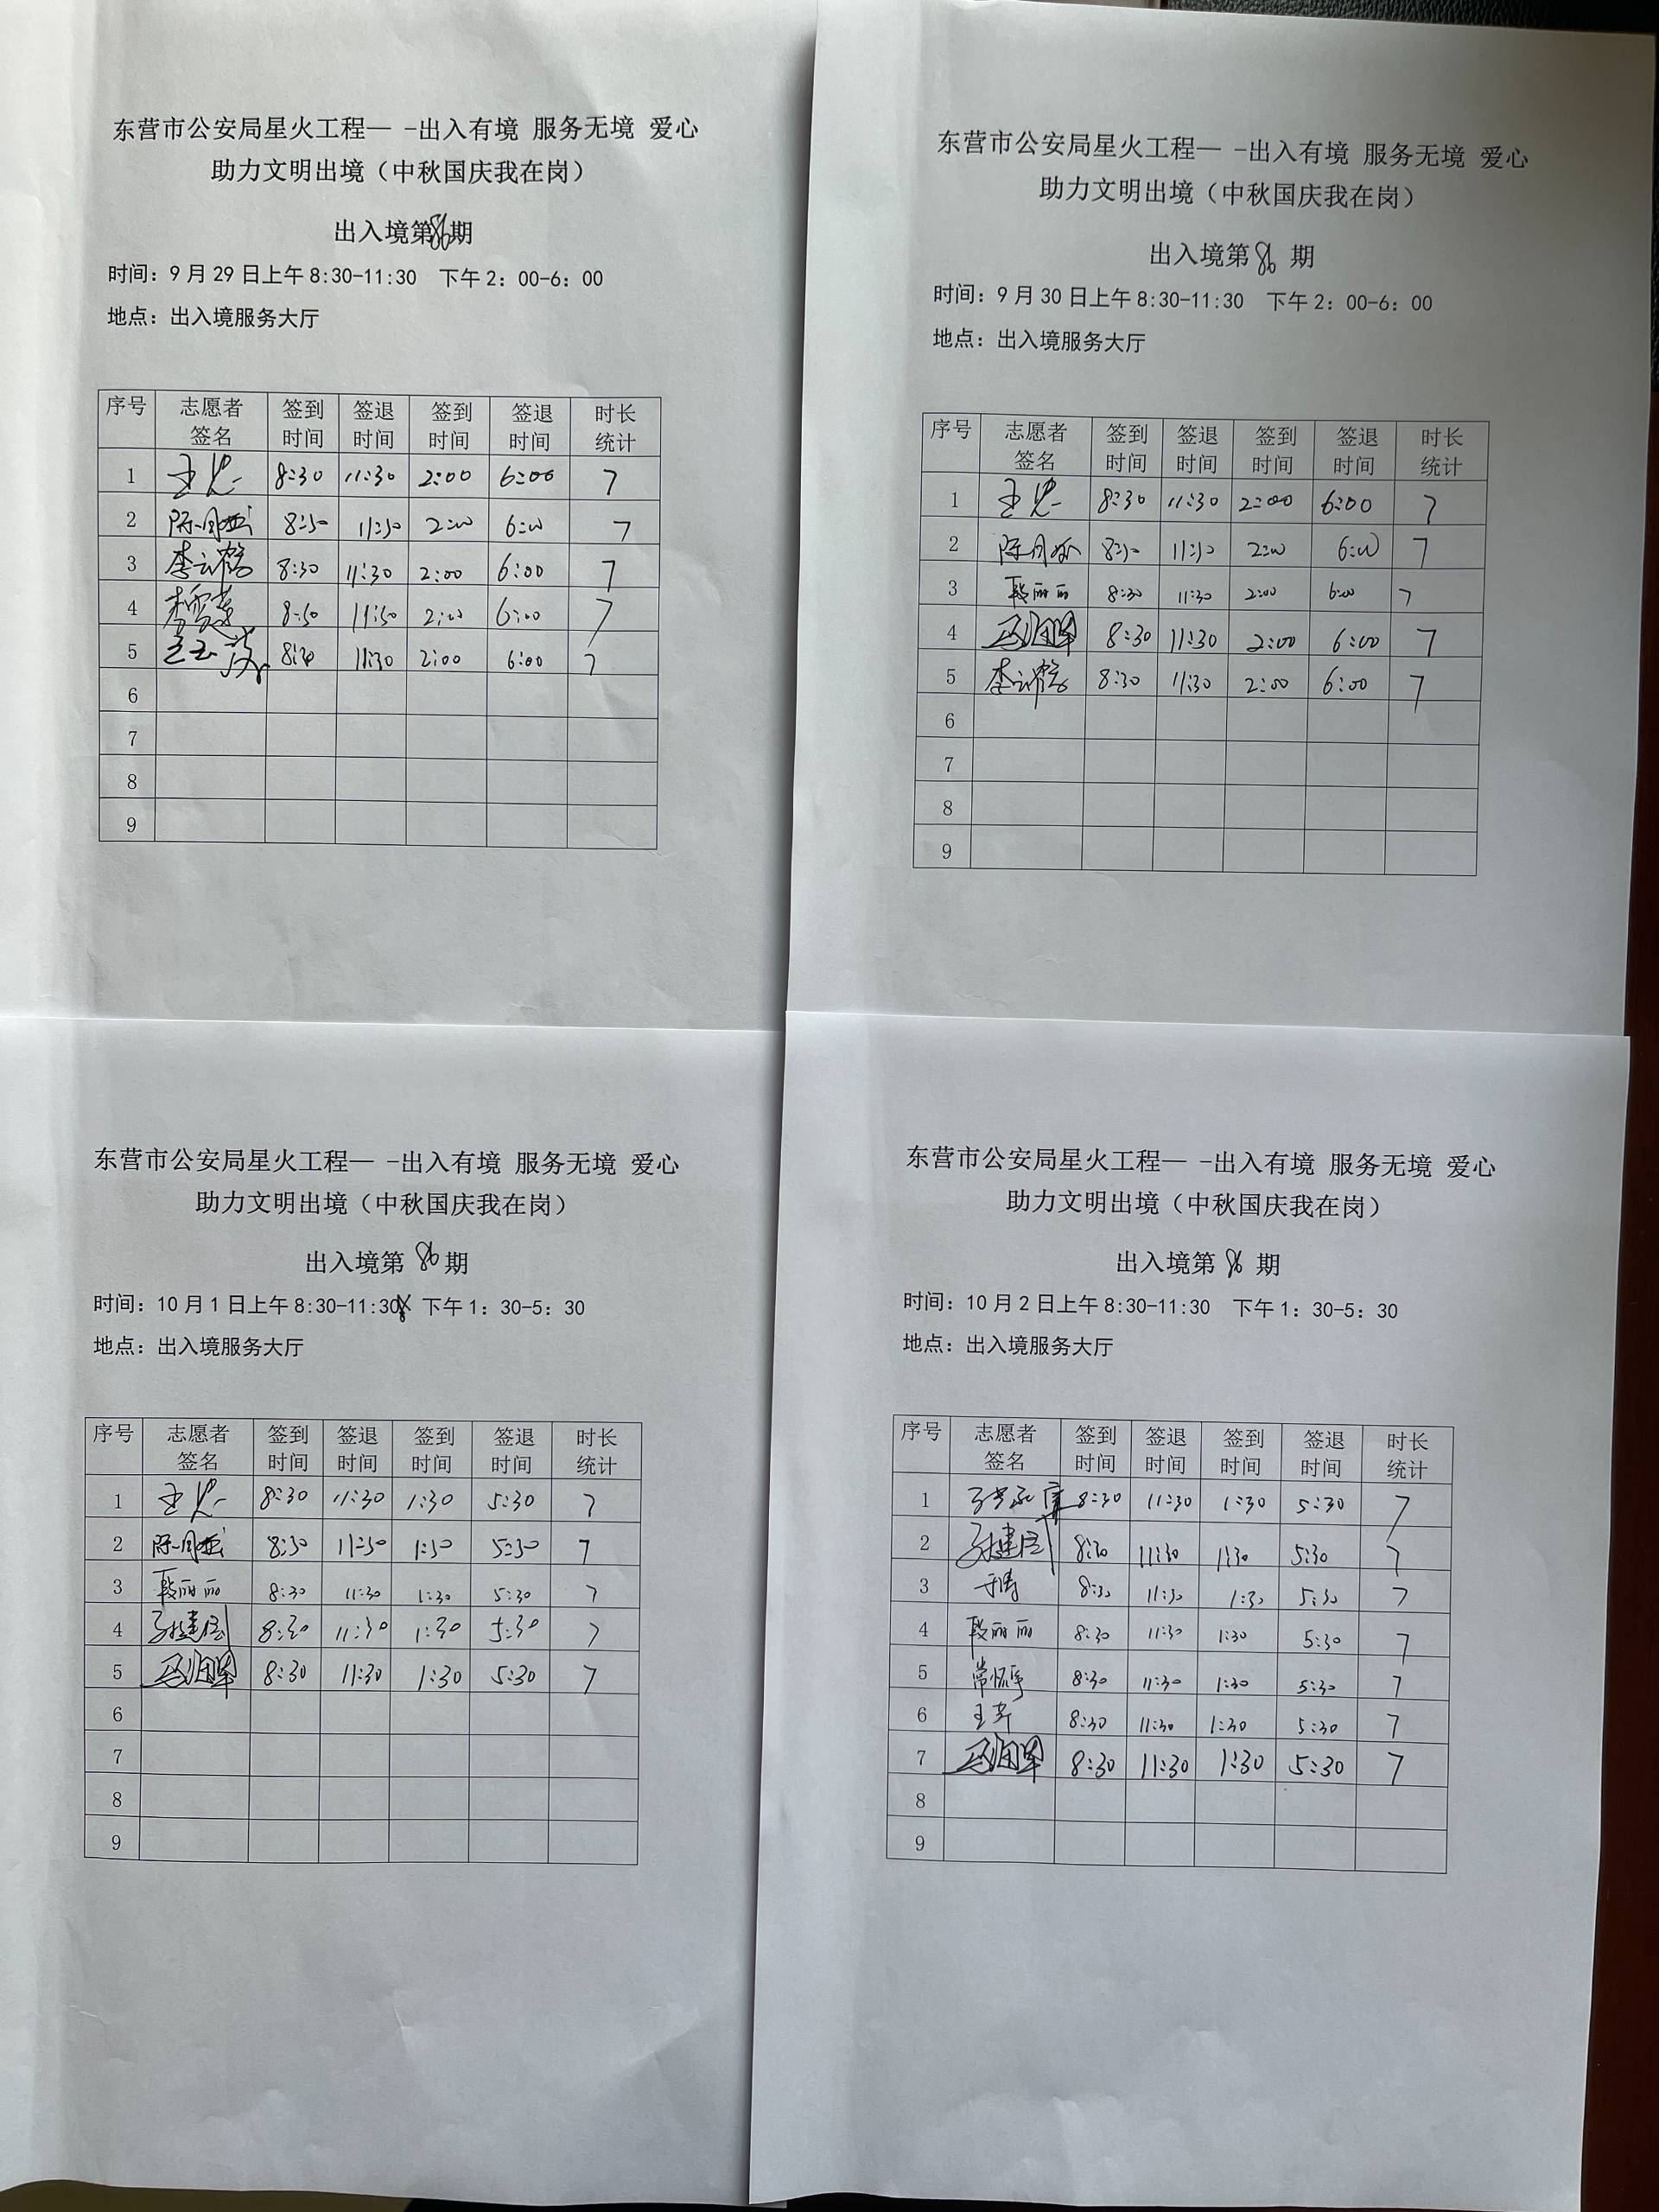 东营市公安局星火工程— -出入有境 服务无境 爱心
助力文明出境（中秋国庆我在岗）
出入境第86期
时间：9月29日上午8:30-11:30 下午2：00-6：00
地点：出入境服务大厅
序号 志愿者签名 签到时间 签退时间 签到时间 签退时间 时长统计
1 8:30 11:30 2:00 6:00 7
2 8:30 11:30 2:00 6:00 7
3 8:30 11:30 2:00 6:00 7
4 8:30 11:30 2:00 6:00 7
5 11:30 2:00 6:00 7
6
7
8
9
东营市公安局星火工程— -出入有境 服务无境 爱心
助力文明出境（中秋国庆我在岗）
出入境第86期
时间：9月30日上午8:30-11:30 下午2：00-6：00
地点：出入境服务大厅
序号 志愿者签名 签到时间 签退时间 签到时间 签退时间 时长统计
1 8:30 11:30 2:00 6:00 7
2 8:30 11:30 2:00 6:00 7
3 段丽丽 8:30 11:30 2:00 6:00 7
4 8:30 11:30 2:00 6:00 7
5 8:30 11:30 2:00 6:00 7
6
7
8
9
东营市公安局星火工程— -出入有境 服务无境 爱心
助力文明出境（中秋国庆我在岗）
出入境第86期
时间：10月1日上午8:30-11:30 下午1：30-5：30
地点：出入境服务大厅
序号 志愿者签名 签到时间 签退时间 签到时间 签退时间 时长统计
1 8:30 11:30 1:30 5:30 7
2 8:30 11:30 1:30 5:30 7
3 段丽丽 8:30 11:30 1:30 5:30 7
4 8:30 11:30 1:30 5:30 7
5 8:30 11:30 1:30 5:30 7
6
7
8
9
东营市公安局星火工程— -出入有境 服务无境 爱心
助力文明出境（中秋国庆我在岗）
出入境第86期
时间：10月2日上午8:30-11:30 下午1：30-5：30
地点：出入境服务大厅
序号 志愿者签名 签到时间 签退时间 签到时间 签退时间 时长统计
1 8:30 11:30 1:30 5:30 7
2 8:30 11:30 1:30 5:30 7
3 于涛 8:30 11:30 1:30 5:30 7
4 段丽丽 8:30 11:30 1:30 5:30 7
5 8:30 11:30 1:30 5:30 7
6 8:30 11:30 1:30 5:30 7
7 8:30 11:30 1:30 5:30 7
8
9